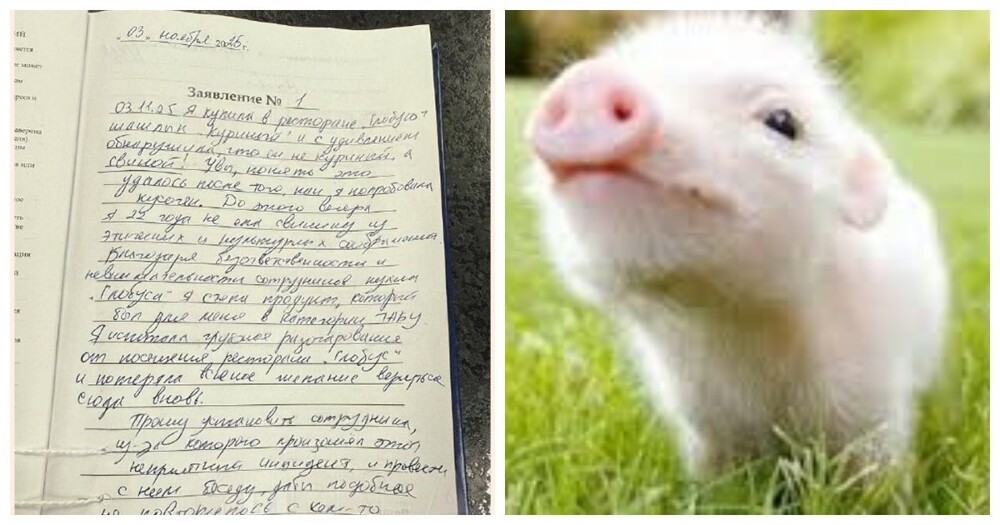 "03" ноября 2025г.
Заявление № 1
03.11.25 Я купила в ресторане "Глобус"
шашлык "Куриный" и с удивлением
обнаружила, что он не куриный, а
свиной! Увы, понять это
удалось после того, как я попробовала
кусочек. До этого вечера
я 22 года не ела свинину из
этических и культурных соображений.
Благодаря безответственности и
невнимательности сотрудников кухни
"Глобуса" я съела продукт, который
был для меня в категории ТАБУ.
Я испытала глубокое разочарование
от посещения ресторана "Глобус"
и потеряла всякое желание вернуться
сюда вновь.
Прошу установить сотрудника,
из-за которого произошёл этот
неприятный инцидент, и провести
с ним беседу, дабы подобное
не повторилось с кем-то